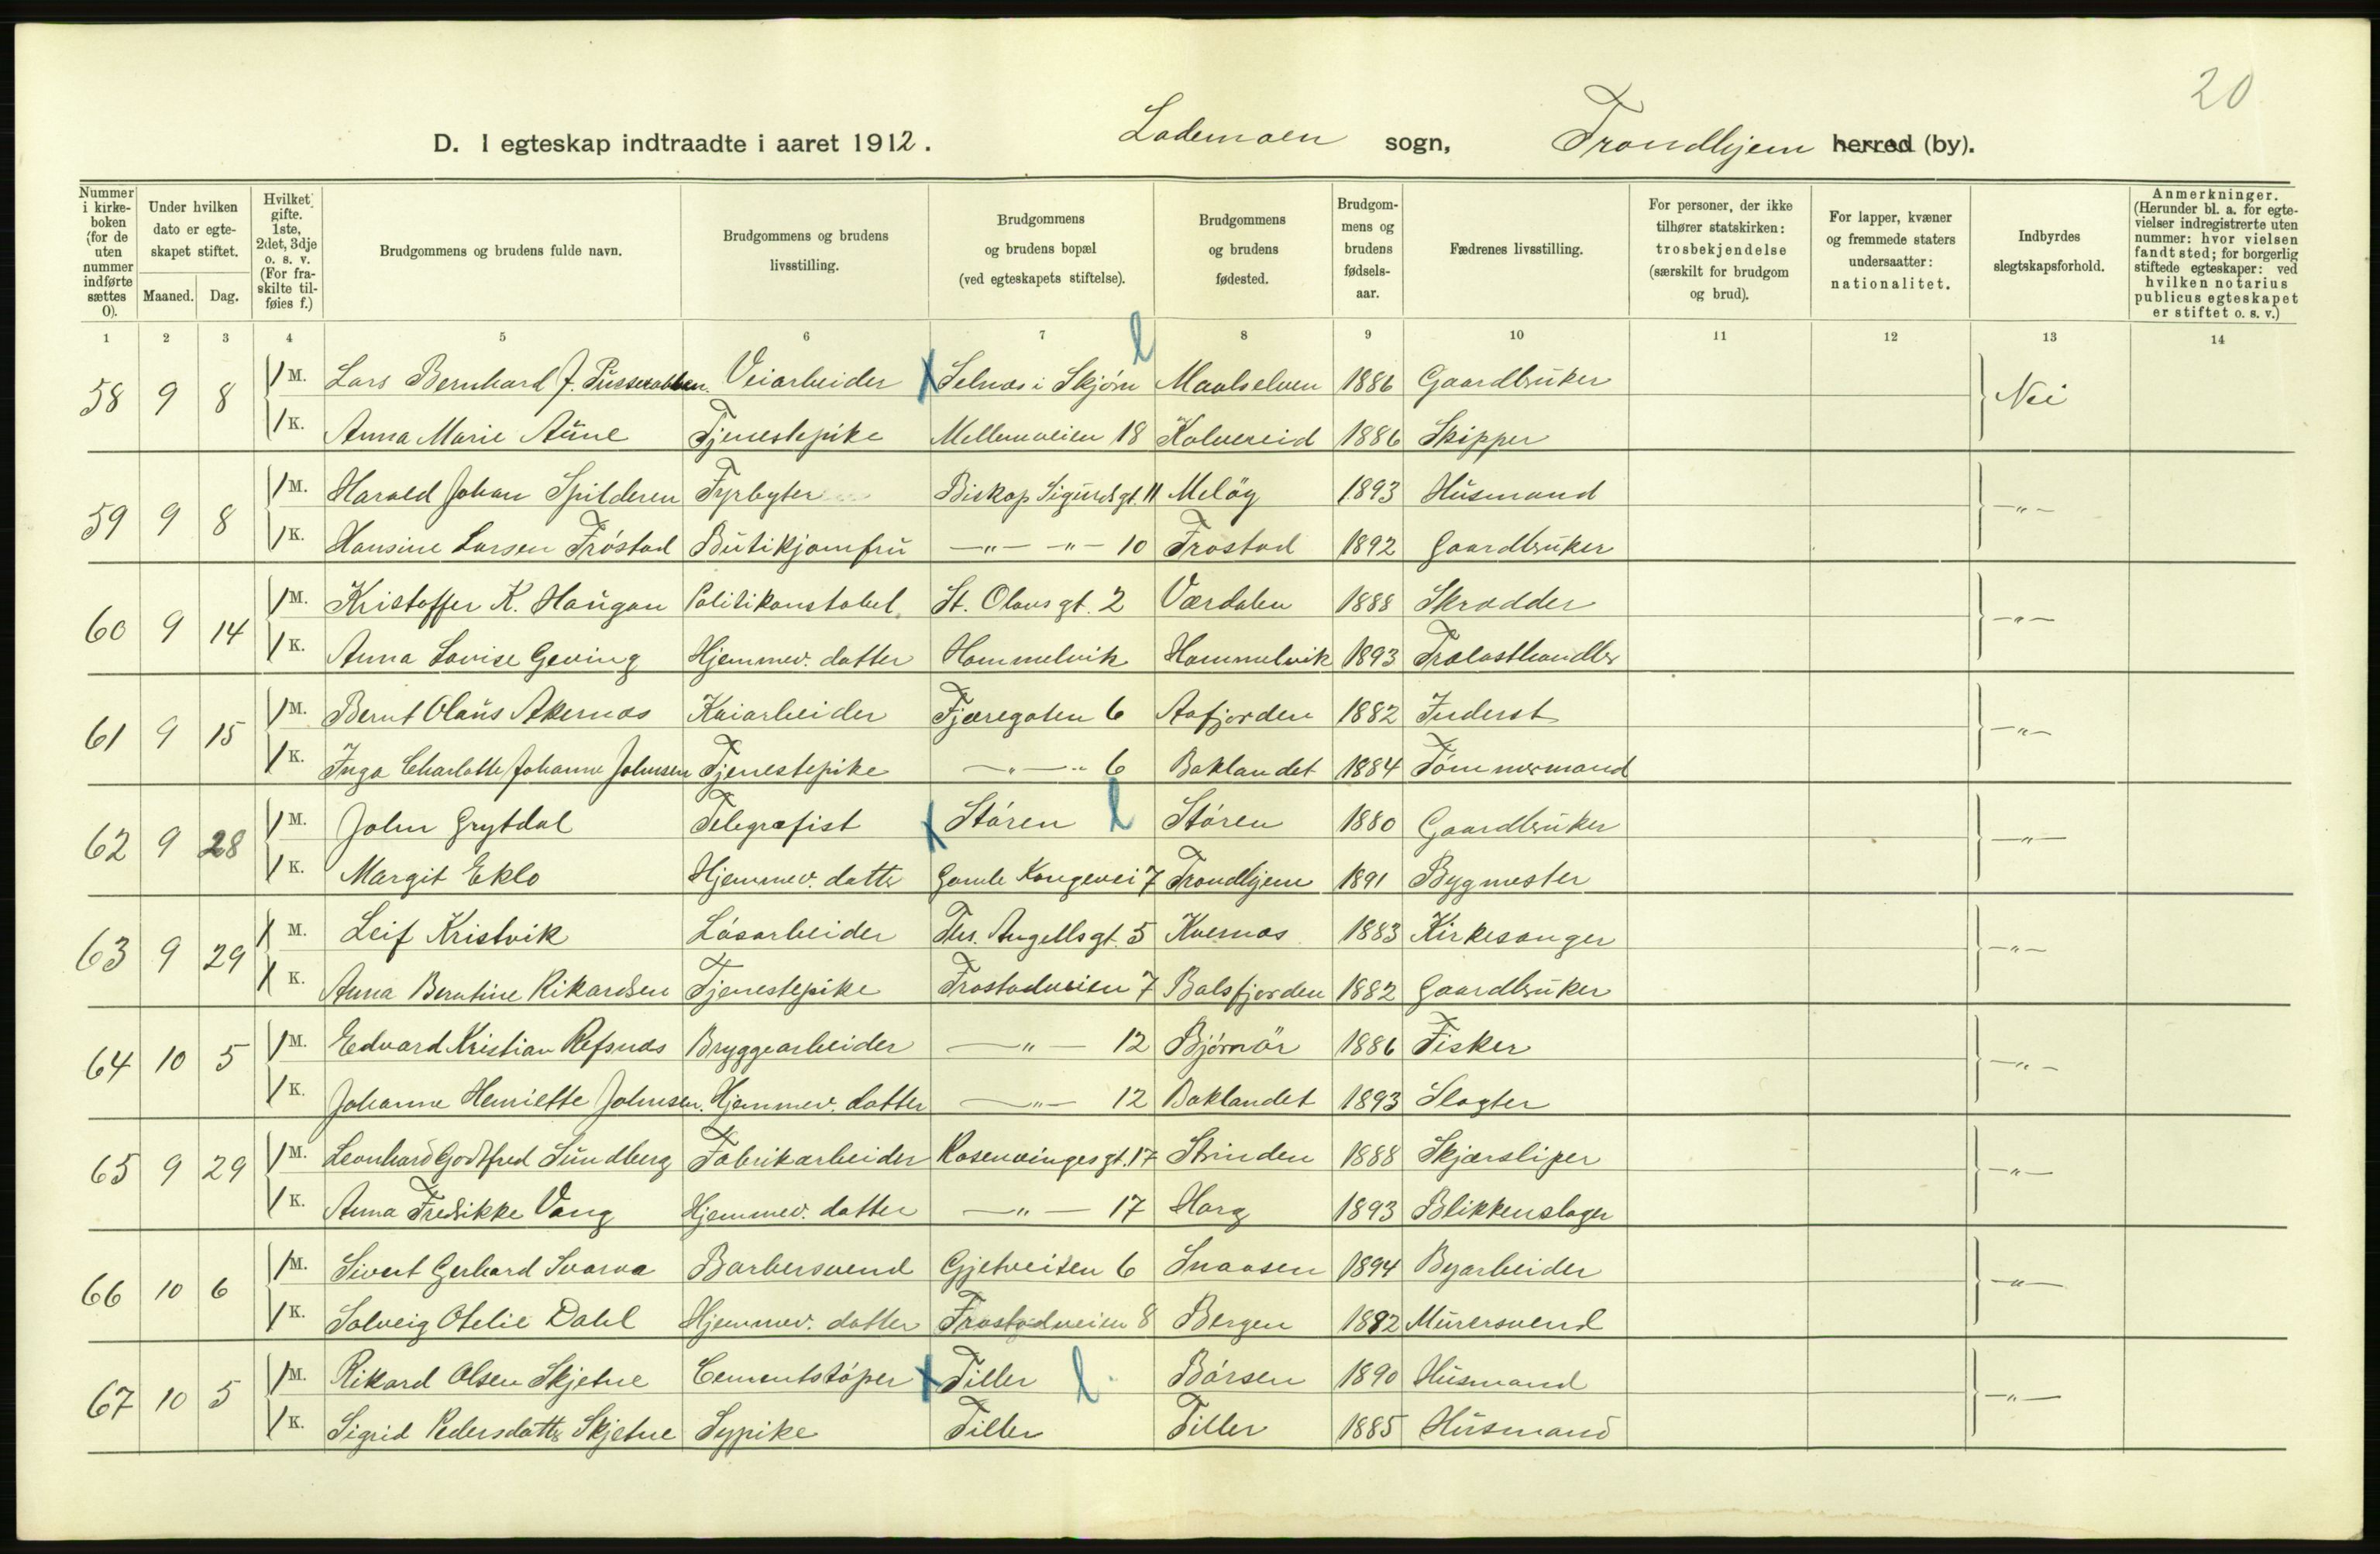 20
D. I egteskap indtraadte i aaret 1912. Lademoen sogn, Trondhjem herred (by).
Nummer i kirkeboken (for de uten nummer indførte sættes 0).
Under hvilken dato er egteskapet stiftet.
Maaned. Dag.
Hvilket gifte. 1ste, 2det, 3dje o. s. v. (For fraskilte tilføies f.)
Brudgommens og brudens fulde navn.
Brudgommens og brudens livsstilling.
Brudgommens og brudens bopæl (ved egteskapets stiftelse).
Brudgommens og brudens fødested.
Brudgommens og brudens fødselsaar.
Fædrenes livsstilling.
For personer, der ikke tilhører statskirken: trosbekjendelse (særskilt for brudgom og brud).
For lapper, kvæner og fremmede staters undersaatter: nationalitet.
Indbyrdes slegtskapsforhold.
Anmerkninger. (Herunder bl. a. for egtevielser indregistrerte uten nummer: hvor vielsen fandt sted; for borgerlig stiftede egteskaper: ved hvilken notarius publicus egteskapet er stiftet o. s. v.)
1 2 3 4 5 6 7 8 9 10 11 12 13 14
58 9 8 1 M. Lars Bernhard J. Veiarbeider Selnæs i Skjørn Maalselven 1886 Gaardbruker Nei
1 K. Anna Marie Aune Tjenestepike Mellemveien 18 Kolvereid 1886 Skipper
59 9 8 1 M. Harald Johan Spilderen Fyrbyter Biskop Sigurds gt. 11 Meløy 1893 Husmand —"—
1 K. Hansine Larsen Frøstad Butikjomfru —"— —"— 10 Frostad 1892 Gaardbruker
60 9 14 1 M. Kristoffer K. Haugan Politikonstabel St. Olavs gt. 2 Værdalen 1888 Skrædder —"—
1 K. Anna Lovise Geving Hjemmev. datter Hommelvik Hommelvik 1893 Trælasthandler
61 9 15 1 M. Bernt Olaus Akernes Kaiarbeider Fjæregaten 6 Aafjorden 1882 Inderst —"—
1 K. Inga Charlotte Johanne Johnsen Tjenestepike —"— 6 Baklandet 1884 Tømmermand
62 9 28 1 M. John Grytdal Telegrafist Støren Støren 1880 Gaardbruker —"—
1 K. Margit Eklo Hjemmev. datter Gamle Kongevei 7 Trondhjem 1891 Bygmester
63 9 29 1 M. Leif Kristvik Løsarbeider Ths. Angells gt. 5 Kvernes 1883 Kirkesanger —"—
1 K. Anna Berntine Rikardsen Tjenestepike Frostadveien 7 Balsfjorden 1882 Gaardbruker
64 10 5 1 M. Edvard Kristian Refsnæs Bryggearbeider —"— 12 Bjørnør 1886 Fisker —"—
1 K. Johanne Henriette Johnsen. Hjemmev. datter —"— 12 Baklandet 1893 Slagter
65 9 29 1 M. Leonhard Godtfred Sundberg Fabrikarbeider Rosenvinges gt. 17 Strinden 1888 Skjærsliper —"—
1 K. Anna Fredrikke Vang Hjemmev. datter —"— 17 Horg 1893 Blikkenslager
66 10 6 1 M. Sivert Gerhard Svarva Barbersvend Gjetveiten 6 Snaasen 1894 Byarbeider —"—
1 K. Solveig Otelie Dahl Hjemmev. datter Frostadveien 8 Bergen 1892 Murersvend
67 10 5 1 M. Rikard Olsen Skjetne Cementstøper Tiller Børsen 1890 Husmand —"—
1 K. Sigrid Pedersdatter Skjetne Sypike Tiller Tiller 1885 Husmand